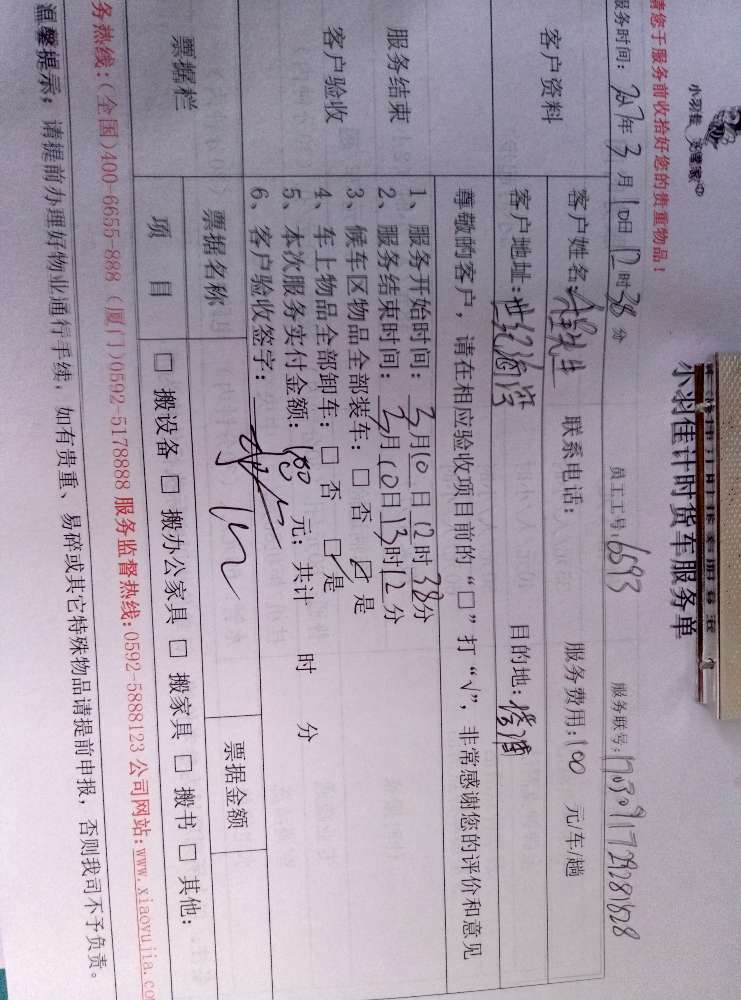 小羽佳 管家
请您于服务前收拾好您的贵重物品！
小羽佳计时货车服务单
服务时间：2017年3月10日12时38分 员工工号：6593 服务联号：
客户资料
客户姓名： 先生 联系电话： 服务费用：100 元/车/趟
客户地址：世纪 目的地：
服务结束
客户验收
尊敬的客户，请在相应验收项目前的“□”打“√”，非常感谢您的评价和意见
1、服务开始时间：3月10日12时38分
2、服务结束时间：3月10日13时12分
3、候车区物品全部装车：□ 否 ☑ 是
4、车上物品全部卸车：□ 否 ☑ 是
5、本次服务实付金额：100 元；共计 时 分
6、客户验收签字：
票据栏
票据名称 票据金额
项 目
□ 搬设备 □ 搬办公家具 □ 搬家具 □ 搬书 □ 其他：
务热线：(全国)400-6655-888 (厦门)0592-5178888 服务监督热线：0592-5888123 公司网站：www.xiaoyujia.co
温馨提示：请提前办理好物业通行手续，如有贵重、易碎或其它特殊物品请提前申报，否则我司不予负责。